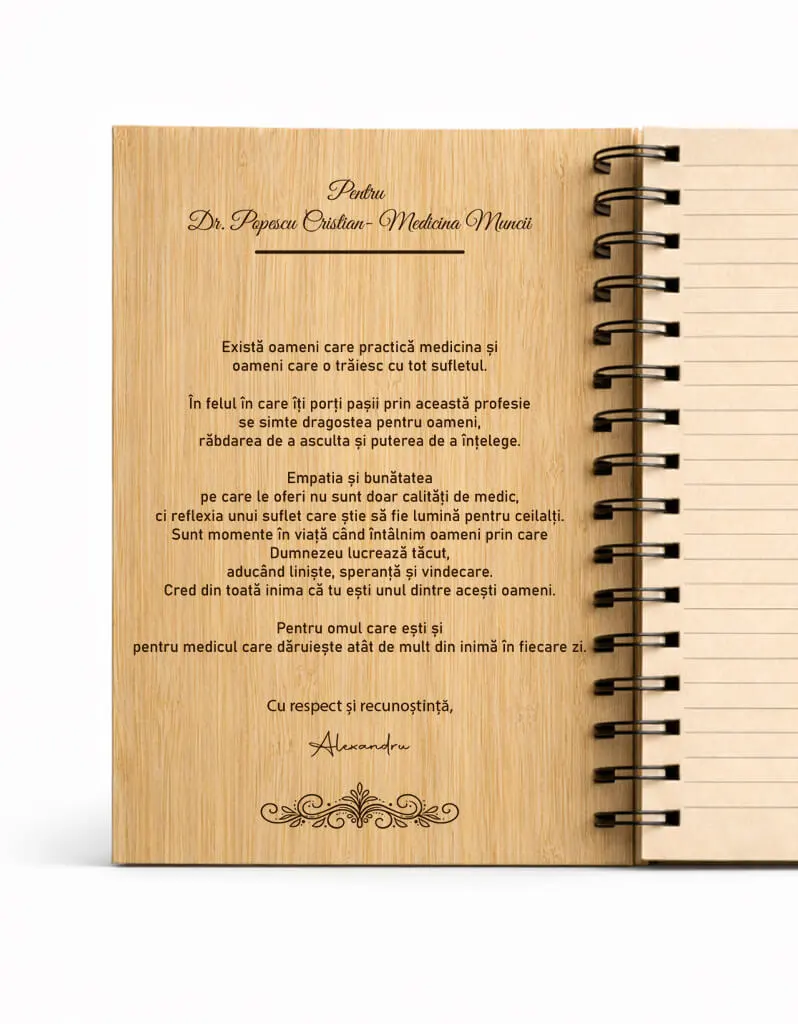 Pentru
Dr. Popescu Cristian- Medicina Muncii
Există oameni care practică medicina și
oameni care o trăiesc cu tot sufletul.
În felul în care îți porți pașii prin această profesie
se simte dragostea pentru oameni,
răbdarea de a asculta și puterea de a înțelege.
Empatia și bunătatea
pe care le oferi nu sunt doar calități de medic,
ci reflexia unui suflet care știe să fie lumină pentru ceilalți.
Sunt momente în viață când întâlnim oameni prin care
Dumnezeu lucrează tăcut,
aducând liniște, speranță și vindecare.
Cred din toată inima că tu ești unul dintre acești oameni.
Pentru omul care ești și
pentru medicul care dăruiește atât de mult din inimă în fiecare zi.
Cu respect și recunoștință,
Alexandru